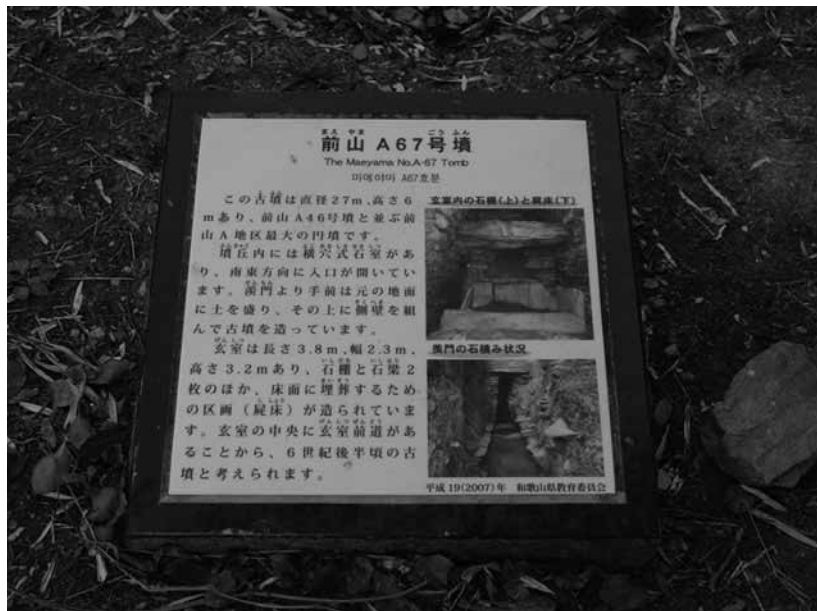 前山 A67号墳
The Maeyama No.A-67 Tomb
마에야마 A67호분
この古墳は直径27m、高さ6
mあり、前山A46号墳と並ぶ前
山A地区最大の円墳です。
墳丘内には横穴式石室があ
り、南東方向に入口が開いてい
ます。羨門より手前は元の地面
に土を盛り、その上に側壁を組
んで古墳を造っています。
玄室は長さ3.8m、幅2.3m、
高さ3.2mあり、石棚と石梁2
枚のほか、床面に埋葬するため
の区画(屍床)が造られていま
す。玄室の中央に玄室前道があ
ることから、6世紀後半頃の古
墳と考えられます。
玄室内の石棚(上)と屍床(下)
羨門の石積み状況
平成19(2007)年 和歌山県教育委員会